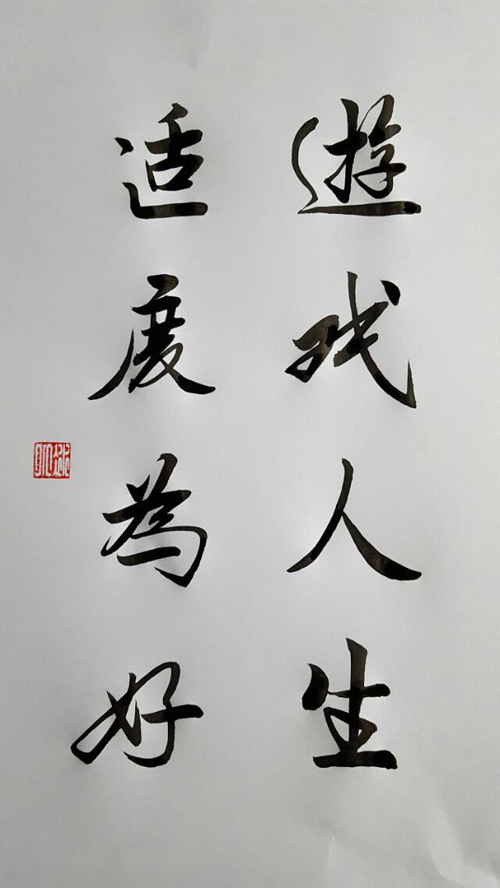 遊戏人生
适度為好